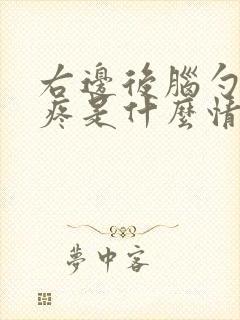 右邊後腦勺
疼是什麼情
夢中客